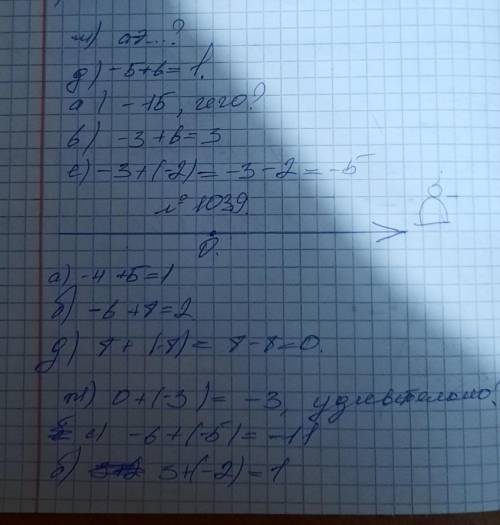 ж) а7...?
д) -5+6=1.
а) -15, чего?
в) -3+6=3
е) -3+(-2)=-3-2=-5
№ 1039.
0.
а) -4+5=1
б) -6+8=2
д) 8+(-8)=8-8=0.
ж) 0+(-3)=-3, удивительно!
е) -6+(-5)=-11
б) 3+(-2)=1